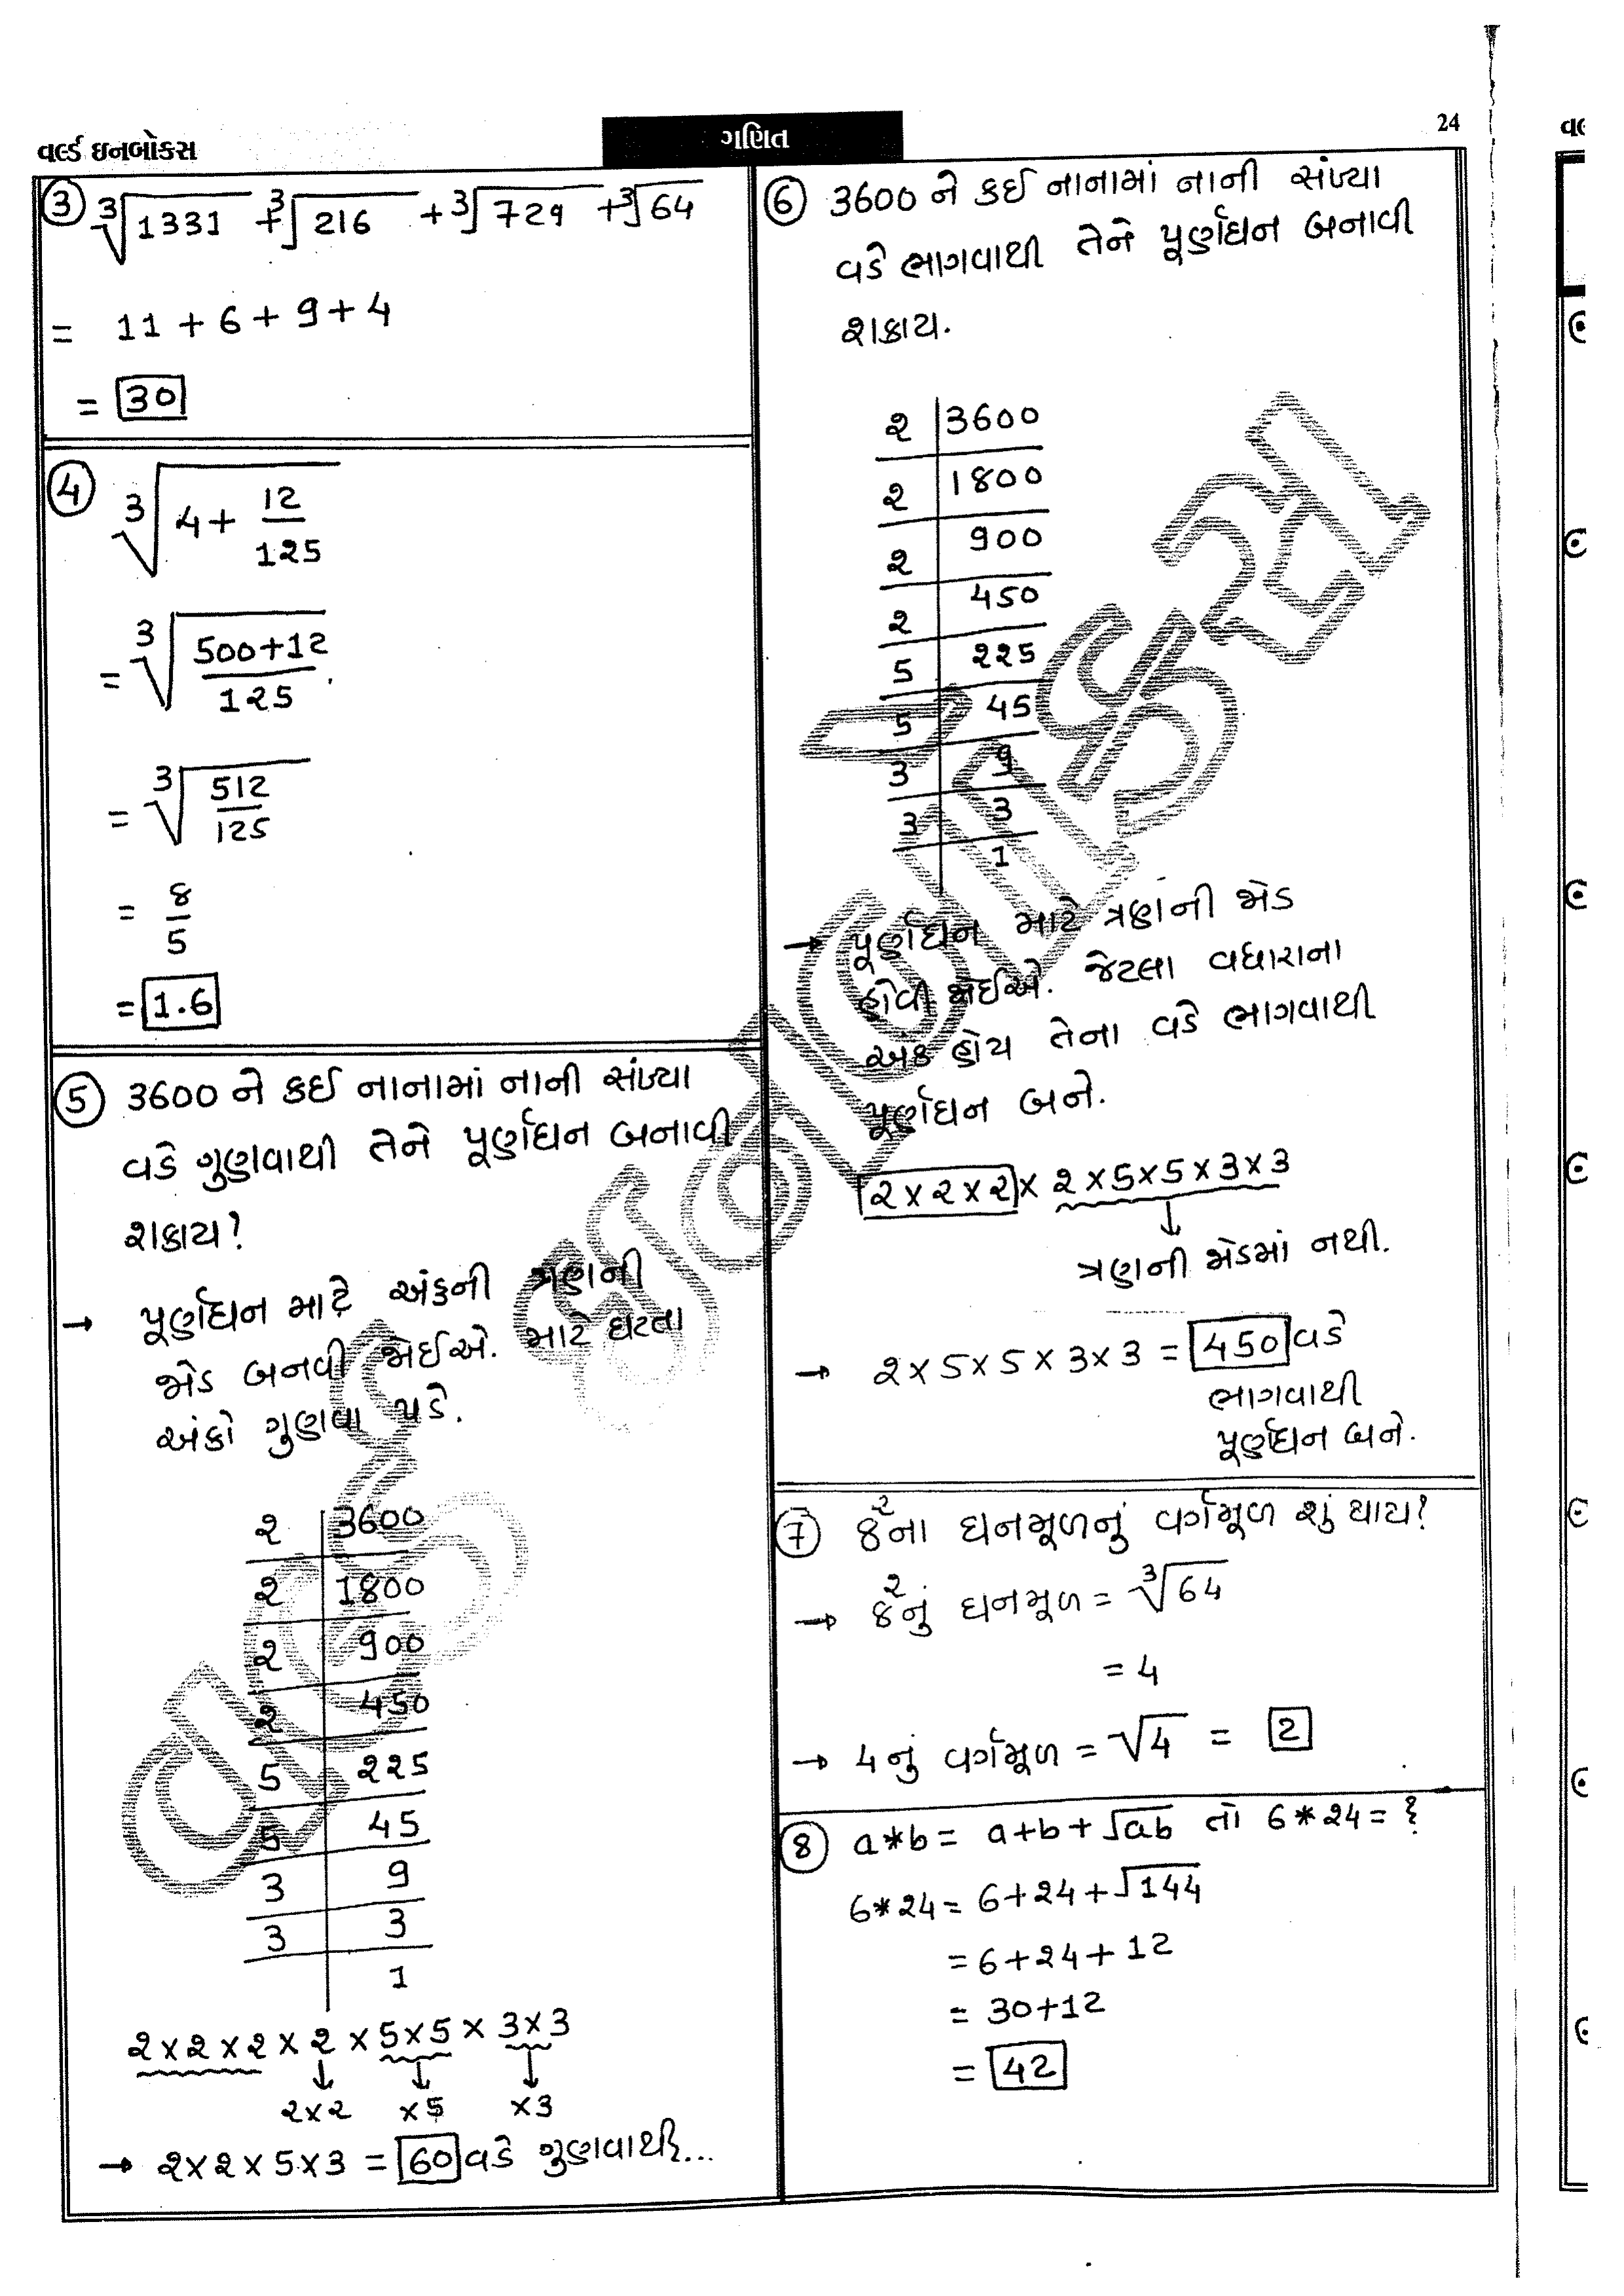 વર્લ્ડ ઇનબોક્સ
ગણિત
24
③ ∛1331 + ∛216 + ∛729 + ∛64
= 11 + 6 + 9 + 4
= 30
④ ∛(4 + 12/125)
= ∛((500+12)/125)
= ∛(512/125)
= 8/5
= 1.6
⑤ 3600 ને કઈ નાનામાં નાની સંખ્યા
વડે ગુણવાથી તેને પૂર્ણઘન બનાવી
શકાય?
→ પૂર્ણઘન માટે અંકની ત્રણની
જોડ બનવી જોઈએ. માટે ઘટતા
અંકો ગુણવા પડે.
2 | 3600
2 | 1800
2 | 900
2 | 450
5 | 225
5 | 45
3 | 9
3 | 3
1
2×2×2×2×5×5×3×3
↓ ↓ ↓
2×2 ×5 ×3
→ 2×2×5×3 = 60 વડે ગુણવાથી...
⑥ 3600 ને કઈ નાનામાં નાની સંખ્યા
વડે ભાગવાથી તેને પૂર્ણઘન બનાવી
શકાય.
2 | 3600
2 | 1800
2 | 900
2 | 450
5 | 225
5 | 45
3 | 9
3 | 3
1
→ પૂર્ણઘન માટે ત્રણની જોડ
હોવી જોઈએ. જેટલા વધારાના
અંક હોય તેના વડે ભાગવાથી
પૂર્ણઘન બને.
2×2×2 × 2×5×5×3×3
↓
ત્રણની જોડમાં નથી.
→ 2×5×5×3×3 = 450 વડે
ભાગવાથી
પૂર્ણઘન બને.
⑦ 8²ના ઘનમૂળનું વર્ગમૂળ શું થાય?
→ 8²નું ઘનમૂળ = ∛64
= 4
→ 4નું વર્ગમૂળ = √4 = 2
⑧ a*b = a+b+√ab તો 6*24=?
6*24 = 6+24+√144
= 6+24+12
= 30+12
= 42